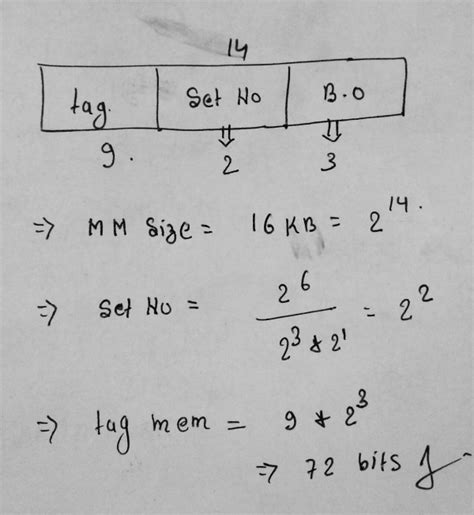 14
tag. Set No B.O
9. 2 3
⇒ MM Size = 16 KB = 2^14.
⇒ Set No = 2^6 / 2^3 * 2^1 = 2^2
⇒ tag mem = 9 * 2^3
⇒ 72 bits